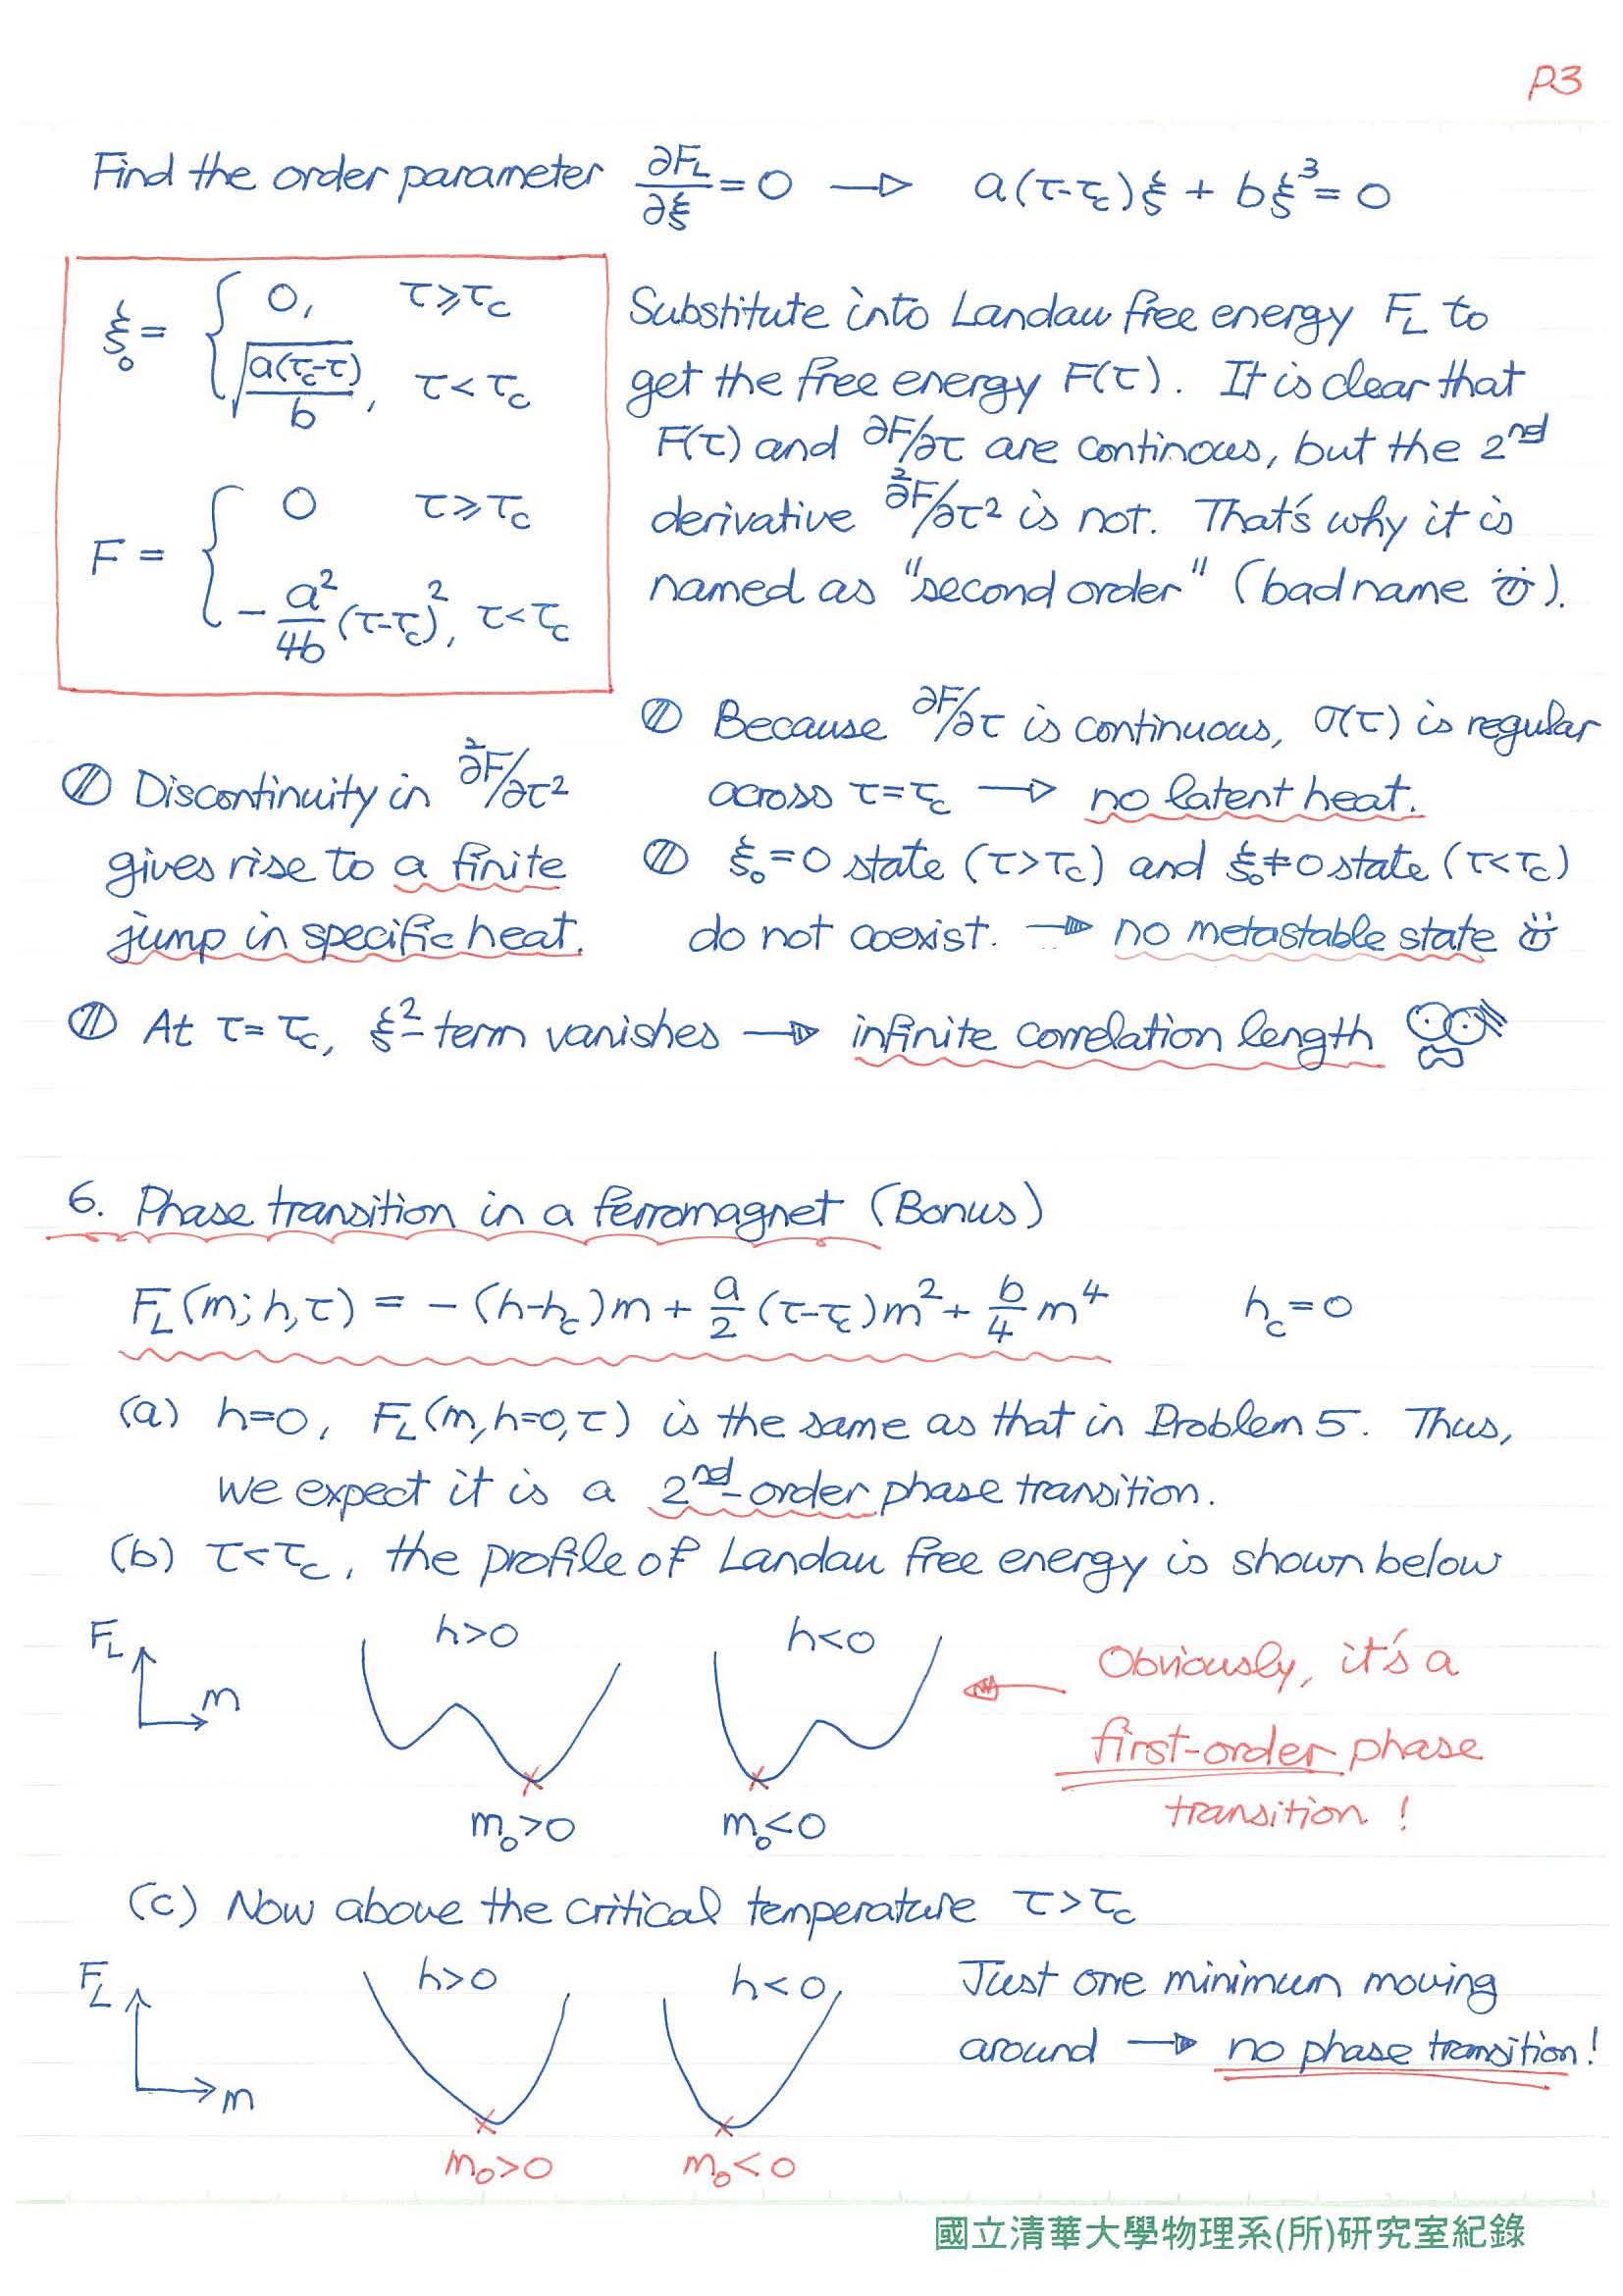 P3
Find the order parameter ∂F_L/∂ξ = 0 → a(τ-τ_c)ξ + bξ³ = 0
ξ₀ = { 0, τ ≥ τ_c
√(a(τ_c-τ)/b), τ < τ_c
F = { 0 τ ≥ τ_c
-a²/4b (τ-τ_c)², τ < τ_c
Substitute into Landau free energy F_L to
get the free energy F(τ). It is clear that
F(τ) and ∂F/∂τ are continous, but the 2nd
derivative ∂²F/∂τ² is not. That's why it is
named as "second order" (bad name ).
Because ∂F/∂τ is continuous, σ(τ) is regular
across τ = τ_c → no latent heat.
ξ₀ = 0 state (τ > τ_c) and ξ₀ ≠ 0 state (τ < τ_c)
do not coexist. → no metastable state
Discontinuity in ∂²F/∂τ²
gives rise to a finite
jump in specific heat.
At τ = τ_c, ξ²-term vanishes → infinite correlation length
6. Phase transition in a ferromagnet (Bonus)
F_L(m; h, τ) = -(h-h_c)m + a/2 (τ-τ_c)m² + b/4 m⁴ h_c = 0
(a) h=0, F_L(m, h=0, τ) is the same as that in Problem 5. Thus,
we expect it is a 2nd-order phase transition.
(b) τ < τ_c, the profile of Landau free energy is shown below
F_L
m
h>0
m₀>0
h<0
m₀<0
Obviously, it's a
first-order phase
transition !
(c) Now above the critical temperature τ > τ_c
F_L
m
h>0
m₀>0
h<0
m₀<0
Just one minimum moving
around → no phase transition!
國立清華大學物理系(所)研究室紀錄